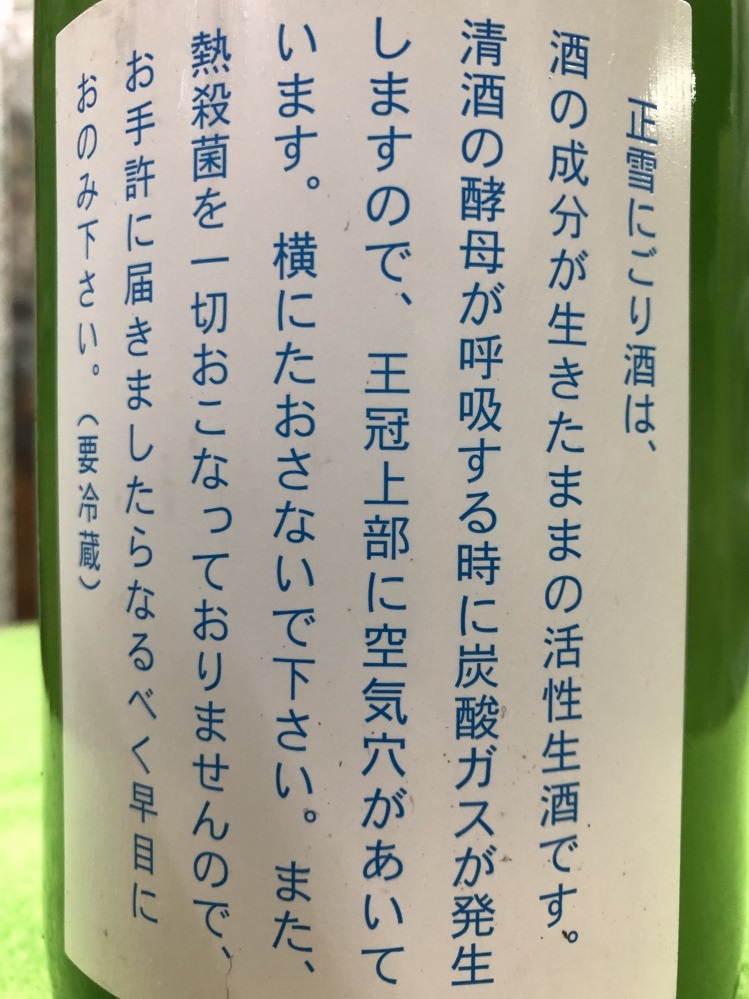 正雪にごり酒は、
酒の成分が生きたままの活性生酒です。
清酒の酵母が呼吸する時に炭酸ガスが発生
しますので、王冠上部に空気穴があいて
います。横にたおさないで下さい。また、
熱殺菌を一切おこなっておりませんので、
お手許に届きましたらなるべく早目に
おのみ下さい。（要冷蔵）